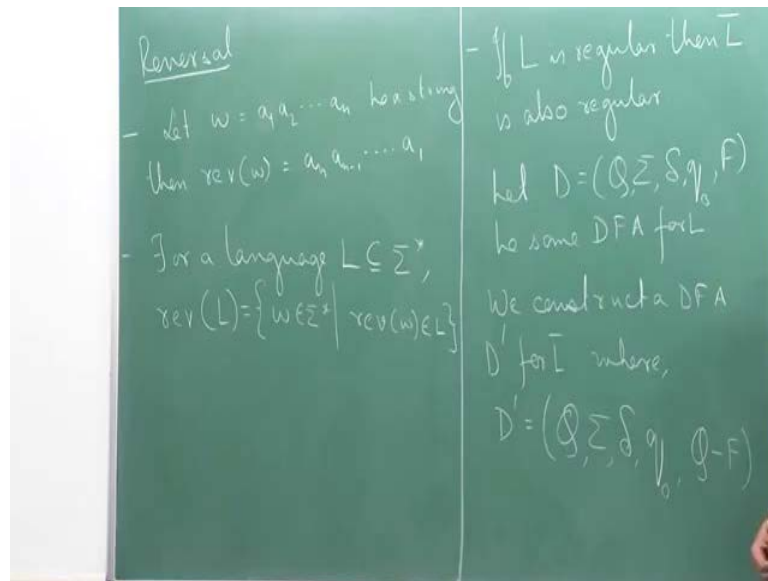 Reversal
- Let w = a₁ a₂ ⋯ aₙ be a string
then rev(w) = aₙ aₙ₋₁ ⋯ a₁
- For a language L ⊆ Σ*,
rev(L) = { w ∈ Σ* | rev(w) ∈ L }
- If L is regular then L̅
is also regular
Let D = (Q, Σ, δ, q₀, F)
be some DFA for L
We construct a DFA
D' for L̅ where,
D' = (Q, Σ, δ, q₀, Q-F)